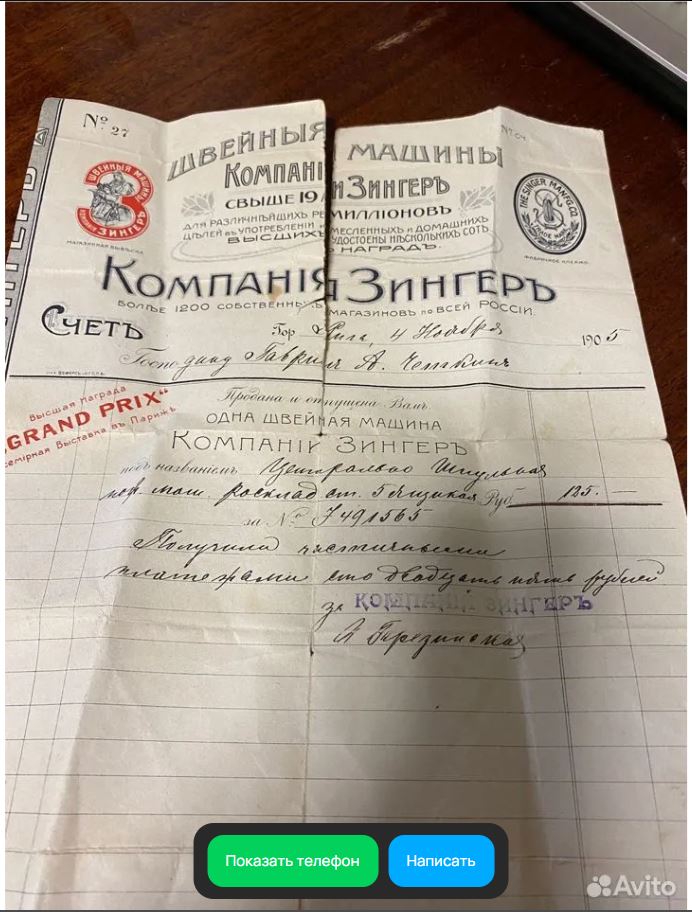 № 27
№ 04
ШВЕЙНЫЯ МАШИНЫ
КОМПАНІИ ЗИНГЕРЪ
СВЫШЕ 19 МИЛЛІОНОВЪ
ДЛЯ РАЗЛИЧНѢЙШИХЪ РЕМЕСЛЕННЫХЪ И ДОМАШНИХЪ
ЦѢЛЕЙ ВЪ УПОТРЕБЛЕНІИ УДОСТОЕНЫ НѢСКОЛЬКИХЪ СОТЪ
ВЫСШИХЪ НАГРАДЪ.
ШВЕЙНЫЯ МАШИНЫ
КОМПАНІИ ЗИНГЕРЪ
МАГАЗИННАЯ ВЫВѢСКА
THE SINGER MANFG. CO.
TRADE MARK
ФАБРИЧНОЕ КЛЕЙМО.
КОМПАНІЯ ЗИНГЕРЪ
БОЛѢЕ 1200 СОБСТВЕННЫХЪ МАГАЗИНОВЪ ПО ВСЕЙ РОССІИ.
СЧЕТЪ
Гор. Рига, 4 Ноября 1905
Господину Гаврилъ А.
Высшая награда
„GRAND PRIX“
семірная Выставка въ Парижѣ
Продана и отпущена Вамъ
ОДНА ШВЕЙНАЯ МАШИНА
КОМПАНІИ ЗИНГЕРЪ
подъ названіемъ Центрально Шпульная
маш. ст. 5 ящиками Руб 125. —
за № J491565
Получила частичными
платежами сто двадцать пять рублей
за КОМПАНІЯ ЗИНГЕРЪ
Показать телефон
Написать
Avito